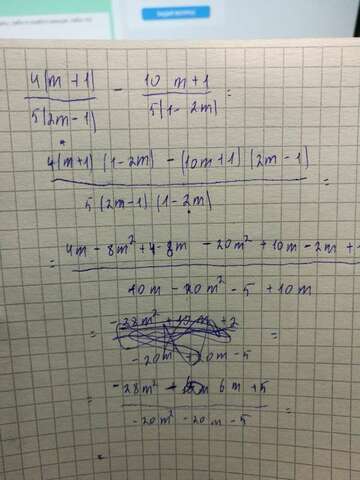 4(m+1)/5(2m-1) - 10 m+1/5(1-2m) =
4(m+1)(1-2m) - (10m+1)(2m-1)/5(2m-1)(1-2m) =
= 4m - 8m² + 4 - 8m - 20m² + 10m - 2m +/10m - 20m² - 5 + 10m
= =
-20m² 20m - 5
= -28m² 6m + 5/-20m² - 20m - 5 =